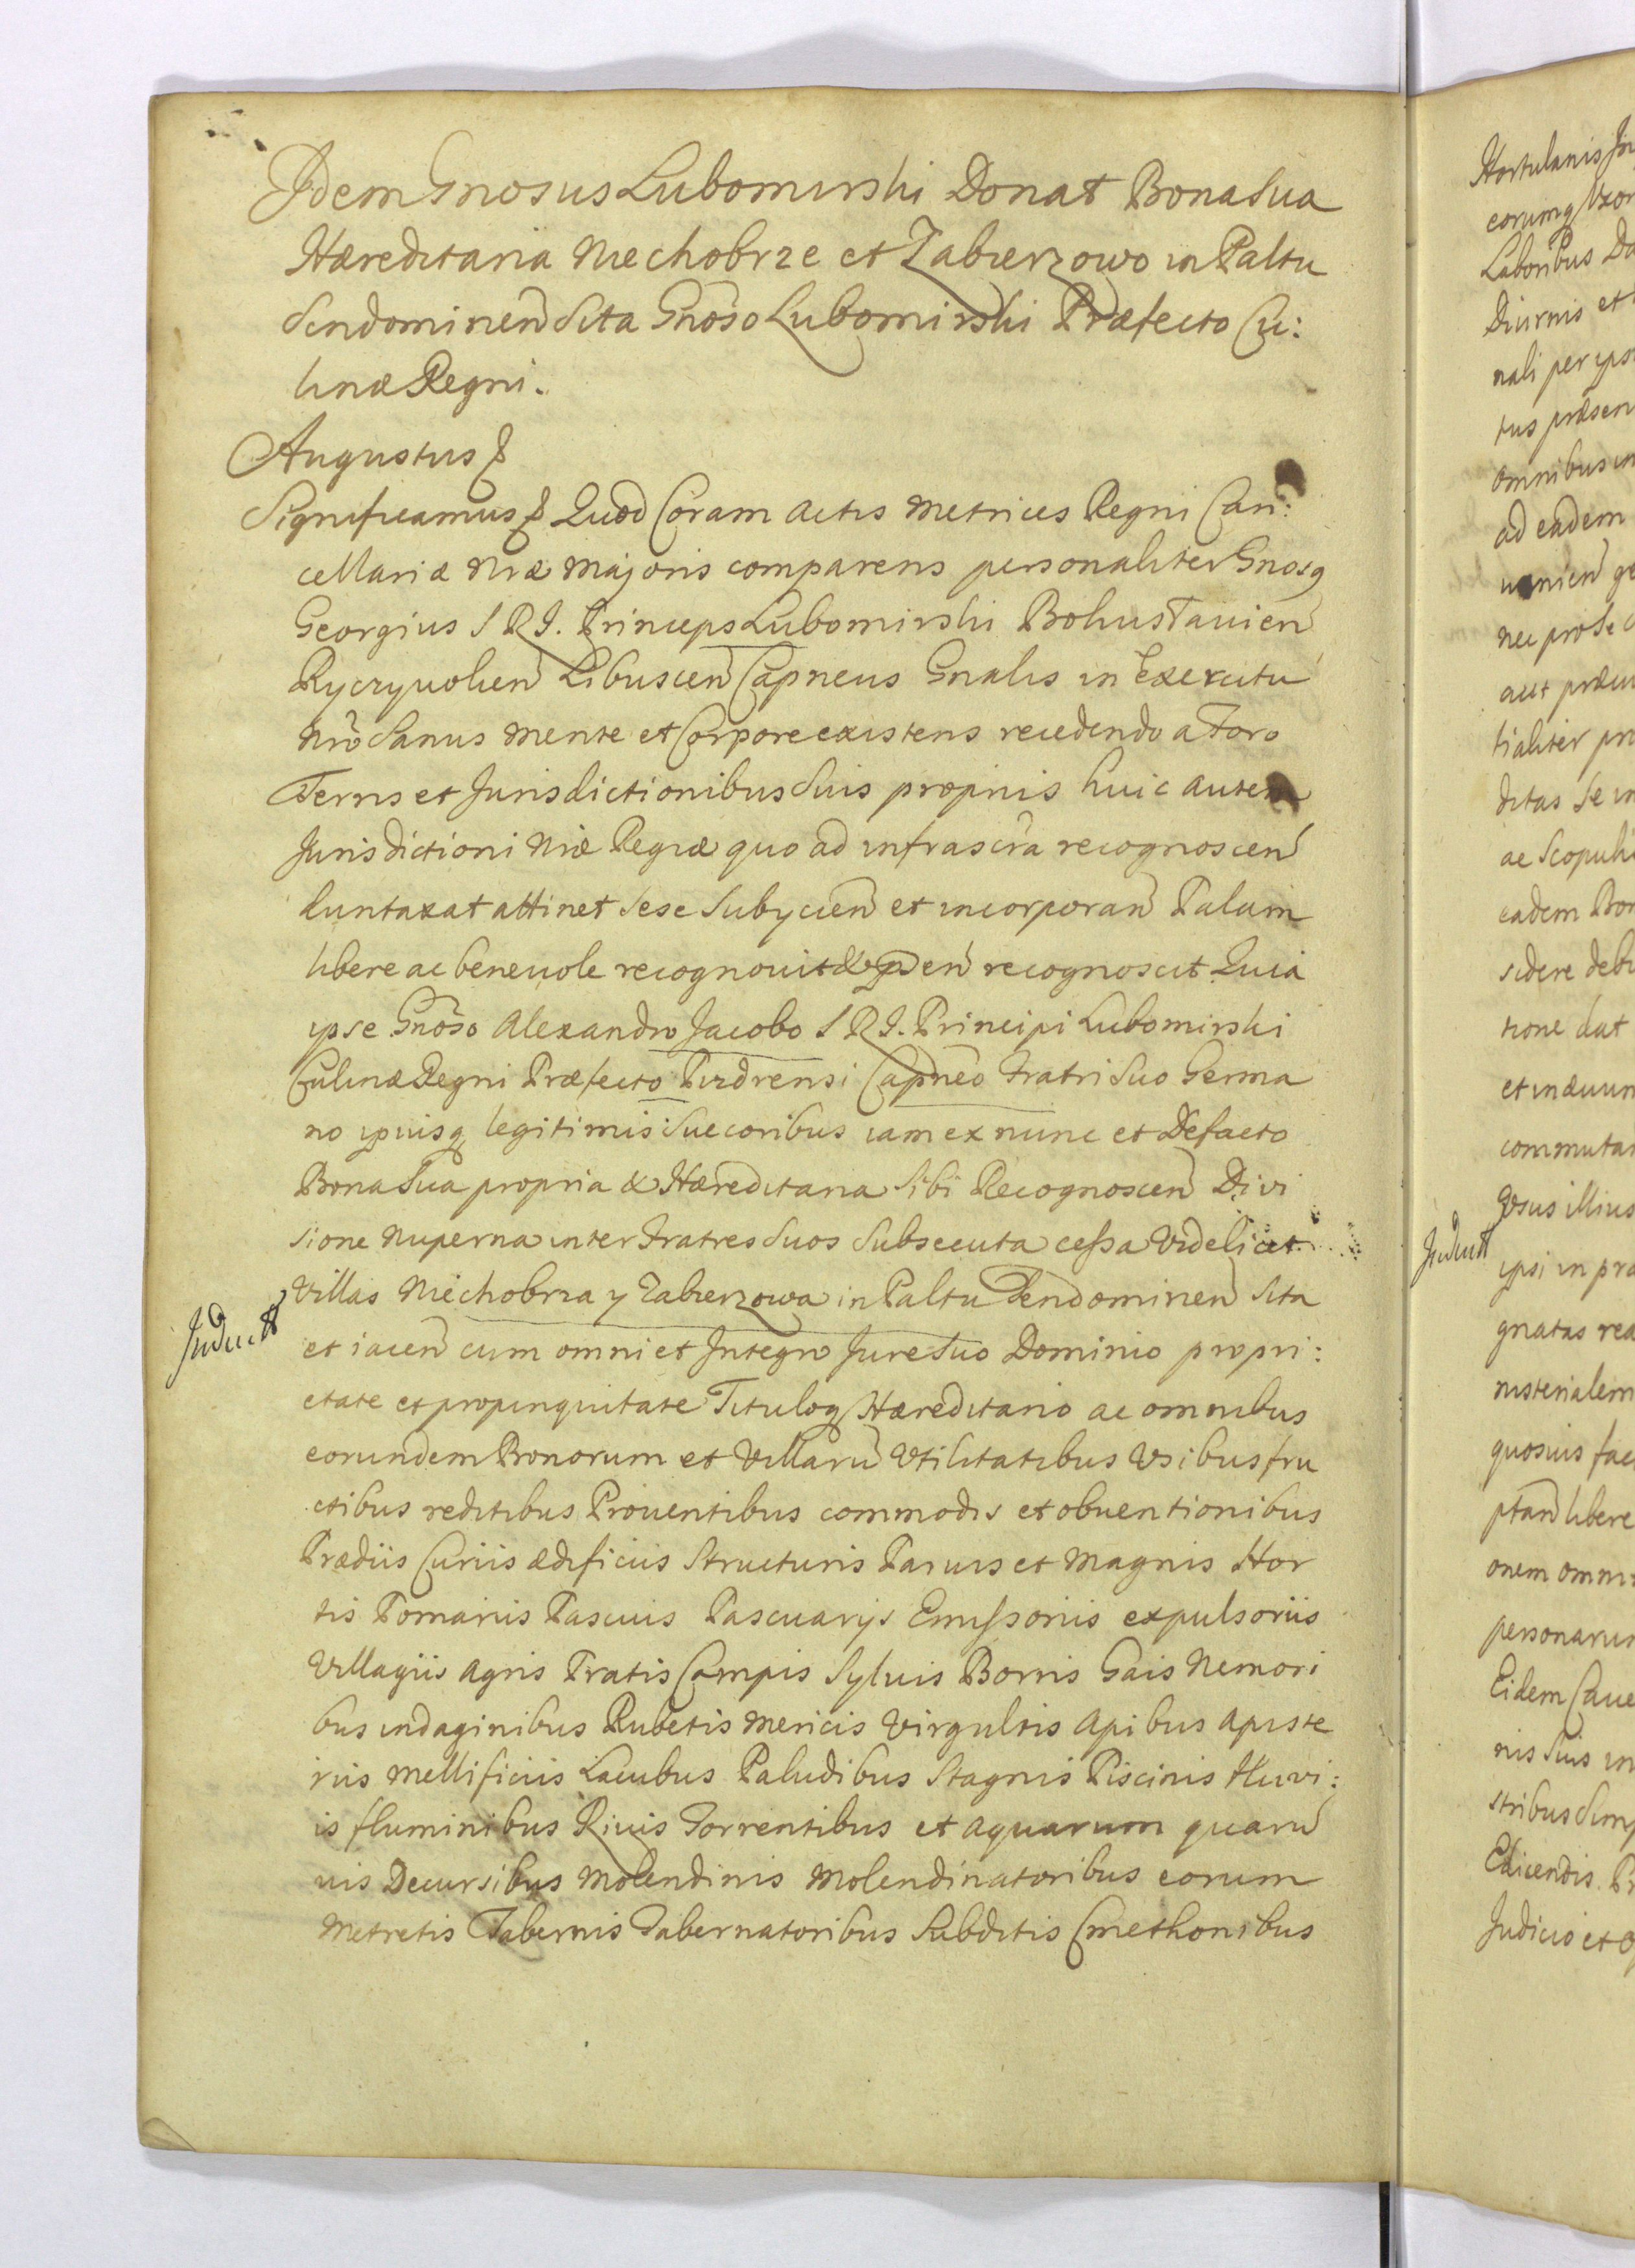 Idem Gnosus Lubomirski Donat Bona Sua
Hæreditaria Niechobrze et Zabierzowo in Paltu
Sendominen̄ Sita Gnōso Lubomirski Præfecto Cu:
linæ Regni.
Augustus &
Significamus & Quod Coram Actis Metrices Regni Can:
cellariæ Nræ Majoris comparens personaliter Gnosq
Georgius S R I. Princeps Lubomirski Bohuslauien̄
Ryczywolien̄ Libuscen̄ Capneus Gnalis in Exercitu
Nrō Sanus Mente et Corpore existens recedendo a Foro
Terris et Jurisdictionibus Suis propriis huic autem
Jurisdictioni Nræ Regiæ quo ad infrascrā recognoscen̄
duntaxat attinet sese Subycien̄ et incorporan̄ Palam
libere ac beneuole recognouit & recognoscit Quia
ipse Gnōso Alexandro Jacobo S R I. Principi Lubomirski
Culinæ Regni Præfecto Capneo Fratri Suo Germa
no ipsiusq legitimis Successoribus iam ex nunc et Defacto
Bona Sua propria & Hæreditaria Sibi Recognoscen̄ Divi
sione Nuperna inter Fratres Suos Subsecuta cessa Videlicet
Villas Niechobrza y Zabierzowa in Paltu Sendominen̄ Sita
et iacen̄ cum omni et Integro Jure Suo Dominio propri:
etate et propinquitate Tituloq Hæreditario ac omnibus
eorundem Bonorum et Villarū Vtilitatibus Vsibus fru
ctibus reditibus Prouentibus commodis et obuentionibus
Prædiis Curiis ædificiis Structuris Paruis et Magnis Hor
tis Pomariis Pascuis Pascuarijs Emissoriis expulsoriis
Villagiis Agris Pratis Campis Syluis Borris Gais Nemori
bus indaginibus Rubetis Mericis Virgultis Apibus Apiste
riis Mellificiis Lacubus Paludibus Stagnis Piscinis Fluvi:
is fluminibus Riuis Torrentibus et Aquarum quarū
uis Decursibus Molendinis Molendinatoribus eorum
Metretis Tabernis Tabernatoribus Subditis Cmethonibus
Hortulanis
Laboribus
Diurnis et
nali per
omnibus
ad eadem
nec pro se
tialiter
ditas se
ac Scopuli
eadem
sidere
tione dat
commutar
Vsus illius
ipsi in
gnatas
nisterialem
quosuis
libere
onem
personarum
Eidem
nis Suis
stribus
Edicendis
Judicio et